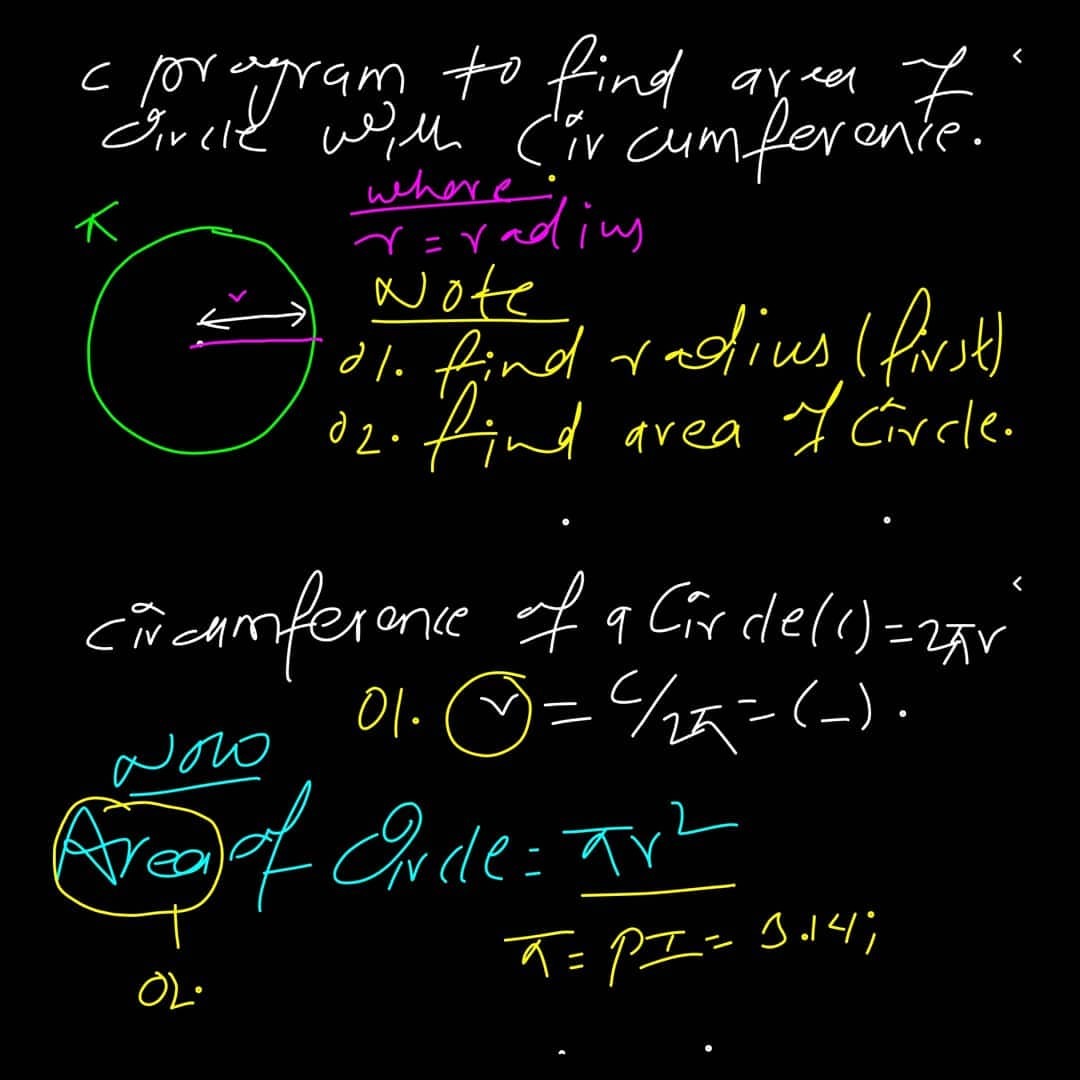 C program to find area of
Circle with Circumference.
where
r = radius
r
Note
01. find radius (first)
02. find area of Circle.
Circumference of a Circle(c) = 2πr
01. r = C/2π = (_).
Now
Area of Circle = πr²
π = PI = 3.14;
02.